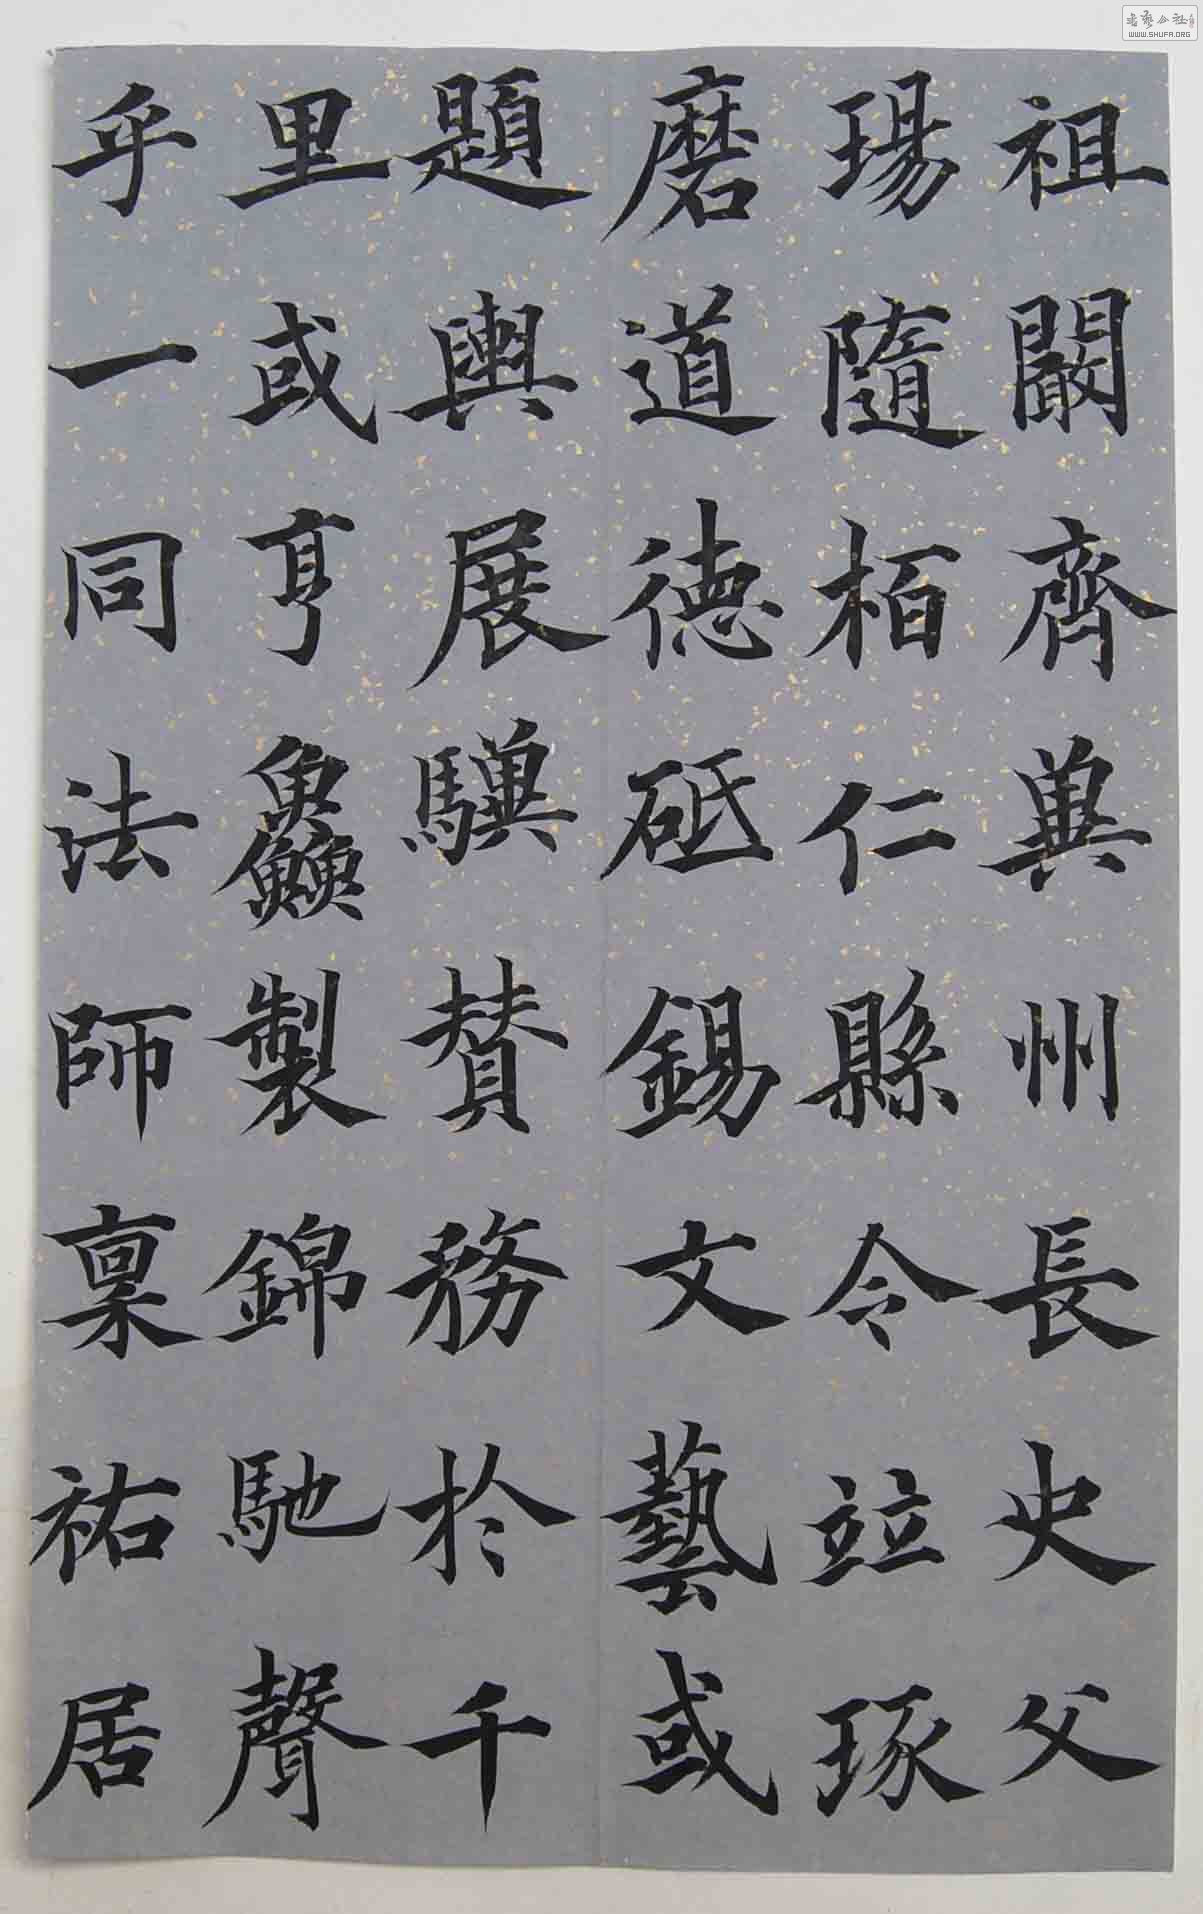 祖闞齊兾州長史父
瑒隨栢仁縣令竝琢
磨道德砥錫文藝或
題輿展驥賛務於千
里或亨鱻製錦馳聲
乎一同法師稟祐居
WWW.SHUFA.ORG